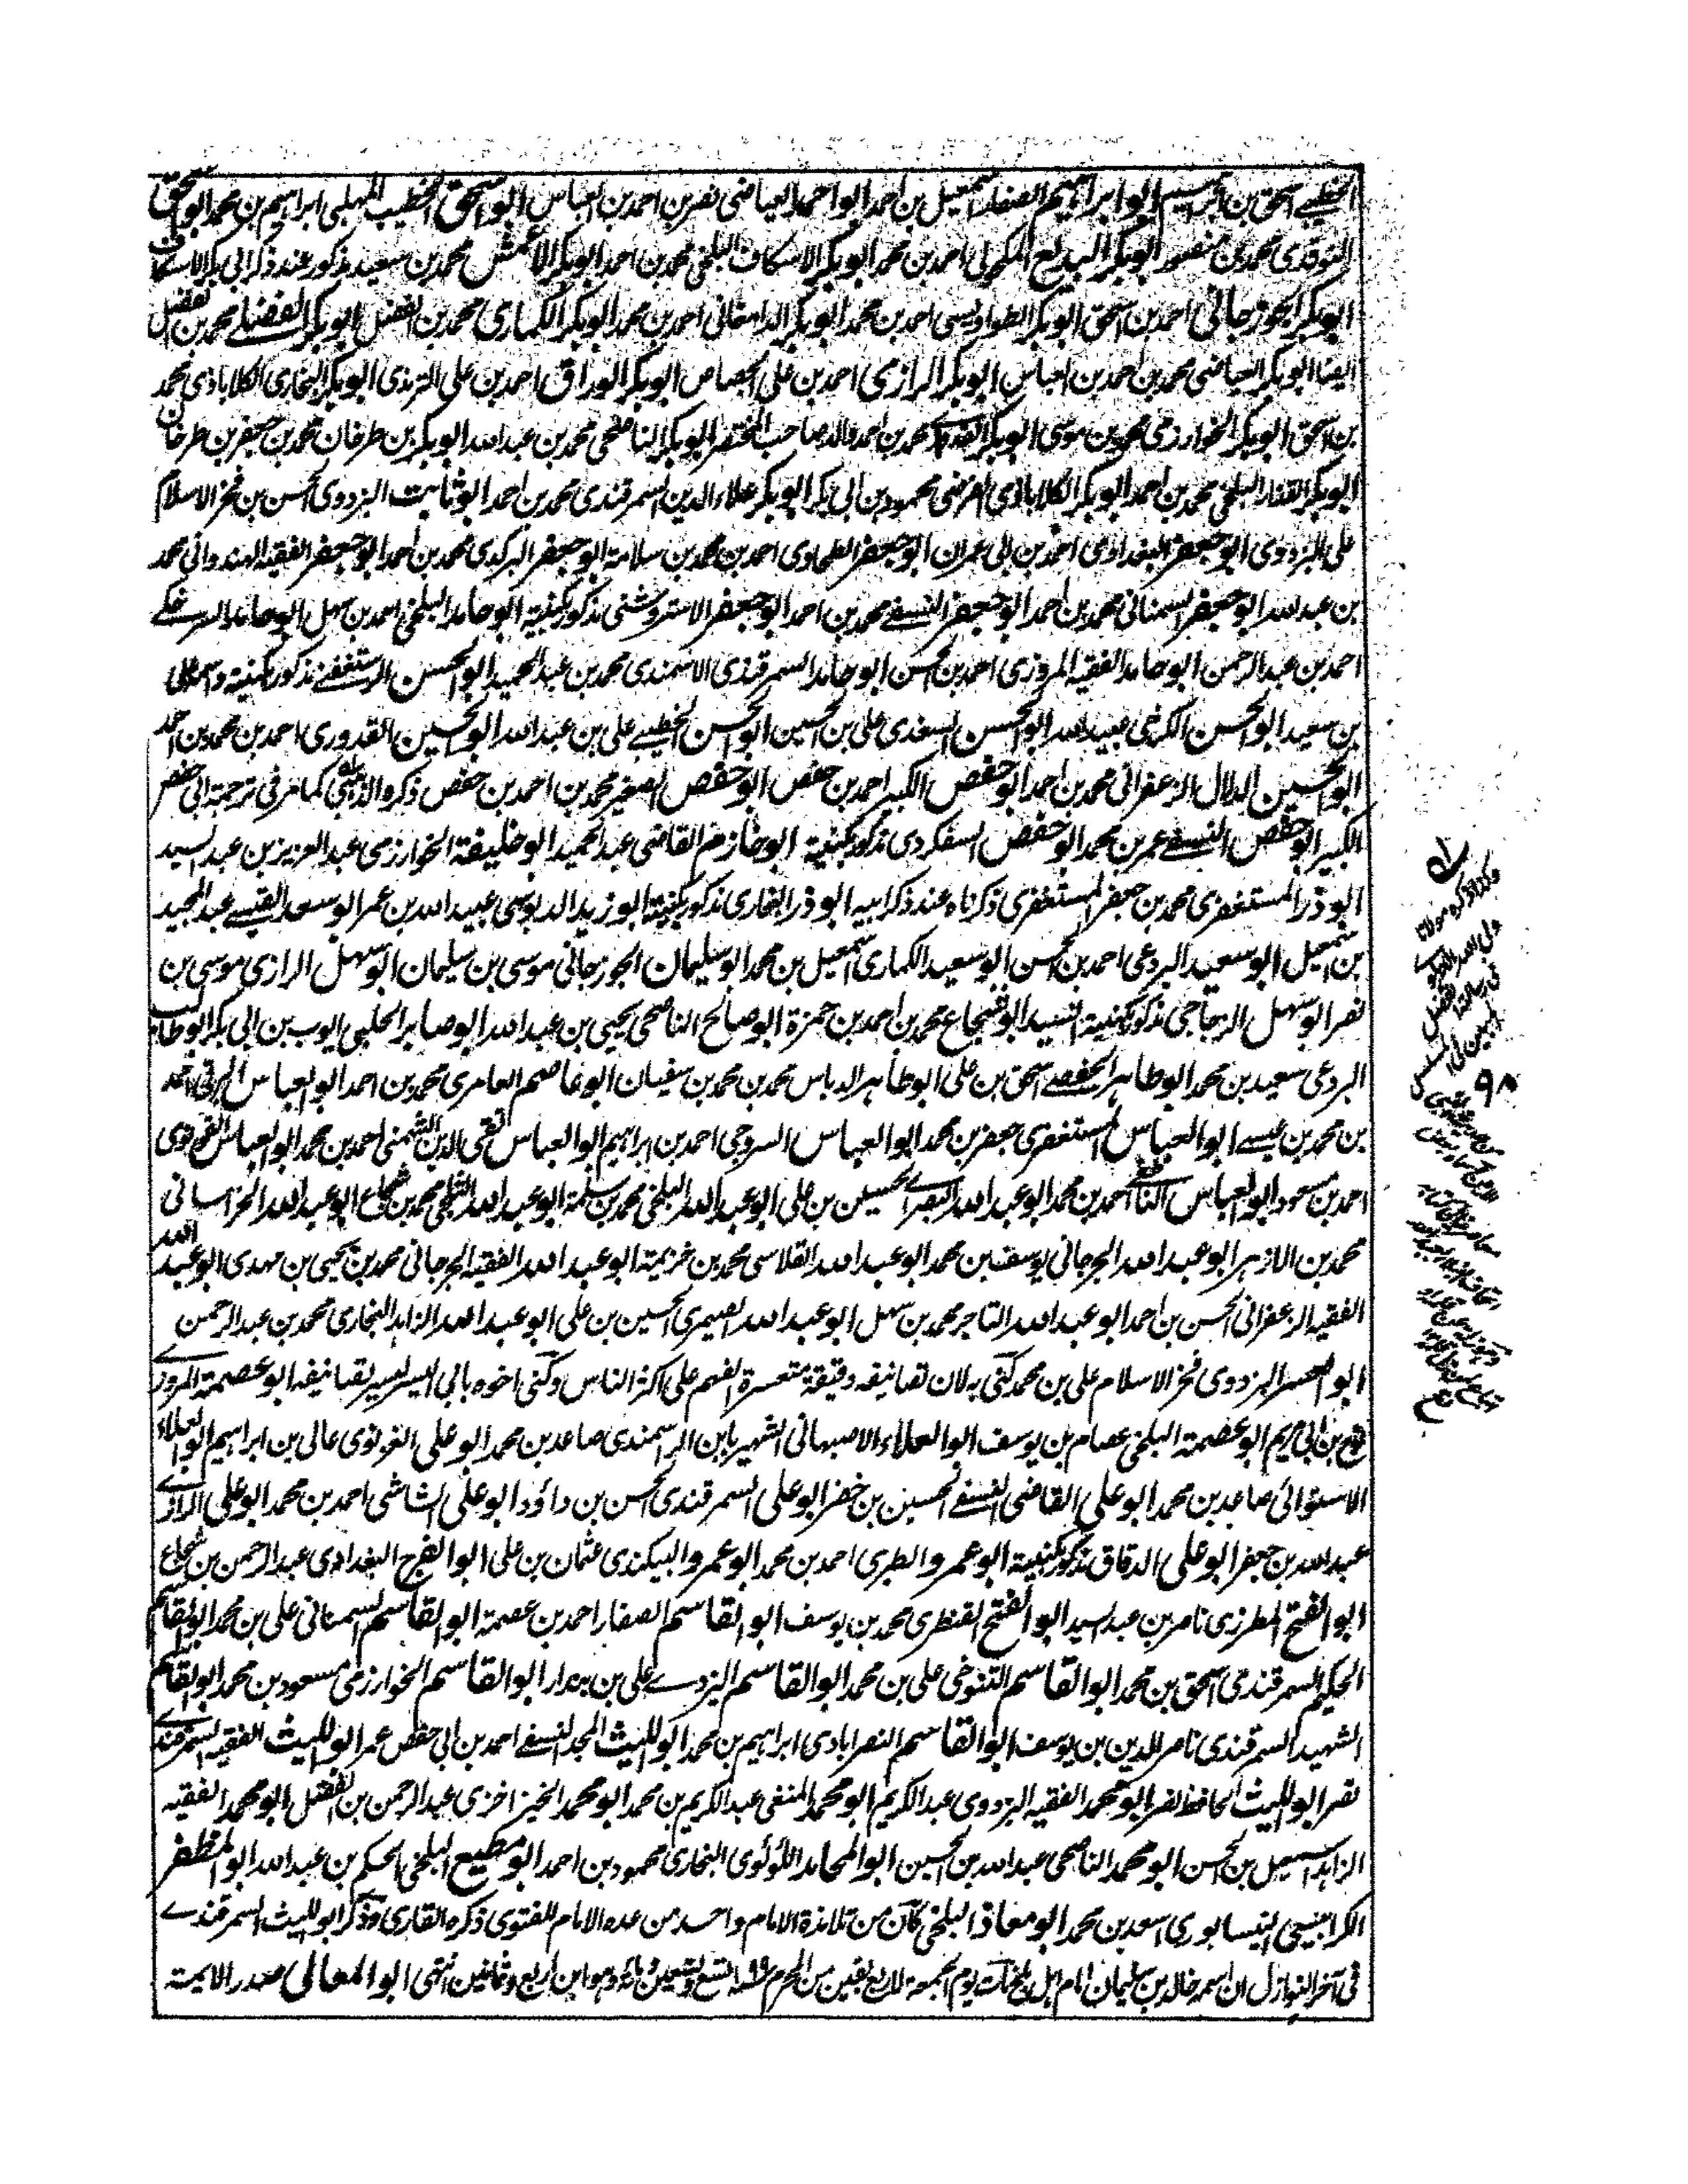 الخطيبي اسحق بن ابراهيم ابو ابراهيم الصفار اسمعيل بن احمد ابو احمد العياضي نصر بن احمد بن العباس ابو اسحق الخطيب المهلبي ابراهيم بن محمد ابو اسحق
النوقدي محمد بن منصور ابو بكر البديع احمد بن محمد ابو بكر الاسكاف البلخي محمد بن احمد ابو بكر الاعمش محمد بن سعيد مذكور عند ذكر ابي بكر الاسكاف
ابو بكر الجوزجاني احمد بن اسحق ابو بكر الطواويسي احمد بن محمد ابو بكر الدامغاني احمد بن محمد ابو بكر الكماري محمد بن الفضل ابو بكر الفضلي محمد بن الفضل
ايضا ابو بكر العياضي محمد بن احمد بن العباس ابو بكر الرازي احمد بن علي الجصاص ابو بكر الوراق احمد بن علي الترمذي ابو بكر البخاري الكلاباذي محمد
بن اسحق ابو بكر الخوارزمي محمد بن موسى ابو بكر محمد بن احمد والد صاحب المختصر ابو بكر الناصحي محمد بن عبد الله ابو بكر بن طرخان محمد بن جعفر بن طرخان
ابو بكر القفار البلخي محمد بن احمد ابو بكر الكلاباذي الفرضي محمود بن ابي بكر ابو بكر علاء الدين السمرقندي محمد بن احمد ابو ثابت البزدوي الحسن بن فخر الاسلام
علي البزدوي ابو جعفر البغدادي احمد بن ابي عمران ابو جعفر الطحاوي احمد بن محمد بن سلامة ابو جعفر البركدي محمد بن احمد ابو جعفر الفقيه الهندواني محمد
بن عبد الله ابو جعفر السمناني محمد بن احمد ابو جعفر النسفي محمد بن احمد ابو جعفر الاستروشني مذكور بكنيته ابو حامد البلخي احمد بن سهل ابو حامد السرخكي
احمد بن عبد الرحمن ابو حامد الفقيه المروزي احمد بن الحسن ابو حامد السمرقندي الاسمندي محمد بن عبد الحميد ابو الحسن الرستغفني مذكور بكنيته واسمه علي
بن سعيد ابو الحسن الكرخي عبيد الله ابو الحسن السغدي علي بن الحسين ابو الحسن الخطيبي علي بن عبد الله ابو الحسين القدوري احمد بن محمد بن احمد
ابو الحسين الدلال الزعفراني محمد بن احمد ابو حفص الكبير احمد بن حفص ابو حفص الصغير محمد بن احمد بن حفص ذكره الذهبي كما مر في ترجمة ابي حفص
الكبير ابو حفص النسفي عمر بن محمد ابو حفص السفكردي مذكور بكنيته ابو خازم القاضي عبد الحميد ابو خليفة الخوارزمي عبد العزيز بن عبد السيد
ابو ذر المستغفري محمد بن جعفر المستغفري ذكرناه عند ذكر ابيه ابو ذر البخاري مذكور بكنيته ابو زيد الدبوسي عبيد الله بن عمر ابو سعد القيسي عبد المجيد
بن اسمعيل ابو سعيد البردعي احمد بن الحسن ابو سعيد الكماري اسمعيل بن محمد ابو سليمان الجوزجاني موسى بن سليمان ابو سهل الرازي موسى بن
نصر ابو سهل الزجاجي مذكور بكنيته السيد ابو شجاع محمد بن احمد بن حمزة ابو صالح الناصحي يحيى بن عبد الله ابو صابر الحلبي ايوب بن ابي بكر ابو طالب
البردعي سعيد بن محمد ابو طاهر الحفصي اسحق بن علي ابو طاهر الدباس محمد بن محمد بن سفيان ابو عاصم العامري محمد بن احمد ابو العباس البرتي احمد
بن محمد بن عيسى ابو العباس المستغفري جعفر بن محمد ابو العباس السروجي احمد بن ابراهيم ابو العباس تقي الدين الشمني احمد بن محمد ابو العباس القونوي
احمد بن مسعود ابو العباس الناطفي احمد بن محمد ابو عبد الله البصري حسين بن علي ابو عبد الله البلخي محمد بن سلمة ابو عبد الله الثلجي محمد بن شجاع ابو عبد الله الخراساني
محمد بن الازهر ابو عبد الله الجرجاني يوسف بن محمد ابو عبد الله القلاسي محمد بن خزيمة ابو عبد الله الفقيه الجرجاني محمد بن يحيى بن مهدي ابو عبد الله
الفقيه الزعفراني الحسن بن احمد ابو عبد الله التاجر محمد بن سهل ابو عبد الله الصيمري الحسين بن علي ابو عبد الله الزاهد البخاري محمد بن عبد الرحمن
ابو العسر البزدوي فخر الاسلام علي بن محمد كني به لان تصانيفه دقيقة متعسرة الفهم على اكثر الناس وكني اخوه بابي اليسر ليسر تصانيفه ابو عصمة المروزي
نوح بن ابي مريم ابو عصمة البلخي عصام بن يوسف ابو العلاء الاصبهاني الشهير بابن الراسمندي صاعد بن محمد ابو علي الغزنوي عالي بن ابراهيم ابو العلاء
الاستوائي صاعد بن محمد ابو علي القاضي النسفي الحسين بن خضر ابو علي السمرقندي الحسن بن داؤد ابو علي الشاشي احمد بن محمد ابو علي الرازي
عبد الله بن جعفر ابو علي الدقاق مذكور بكنيته ابو عمرو الطبري احمد بن محمد ابو عمرو البيكندي عثمان بن علي ابو الفرج البغدادي عبد الرحمن بن شجاع
ابو الفتح المطرزي ناصر بن عبد السيد ابو الفتح القنطري محمد بن يوسف ابو القاسم الصفار احمد بن عصمة ابو القاسم السمناني علي بن محمد ابو القاسم
الحكيم السمرقندي اسحق بن محمد ابو القاسم التنوخي علي بن محمد ابو القاسم اليزدي علي بن بندار ابو القاسم الخوارزمي مسعود بن محمد ابو القاسم
الشهيد السمرقندي ناصر الدين بن يوسف ابو القاسم النصرابادي ابراهيم بن محمد ابو الليث المجد النسفي احمد بن ابي حفص عمر ابو الليث الفقيه السمرقندي
نصر ابو الليث الحافظ نصر ابو محمد الفقيه البزدوي عبد الكريم ابو محمد المنفي عبد الكريم بن محمد ابو محمد الخيزاخزي عبد الرحمن بن الفضل ابو محمد الفقيه
الزاهد اسمعيل بن الحسن ابو محمد الناصحي عبد الله بن الحسين ابو المحامد اللؤلؤي البخاري محمود بن احمد ابو مطيع البلخي الحكم بن عبد الله ابو المظفر
الكرابيسي النيسابوري اسعد بن محمد ابو معاذ البلخي كان من تلامذة الامام واحد من عده الامام للفتوى ذكره القاري وذكر ابو الليث السمرقندي
في آخر النوازل ان اسمه خالد بن سليمان امام اهل بلخ مات يوم الجمعة لاربع بقين من المحرم سنة ١٩٩ تسع وتسعين ومائة وهو ابن اربع وثمانين انتهى ابو المعالي صدر الايمة
هكذا ذكره مولانا
ولي الله